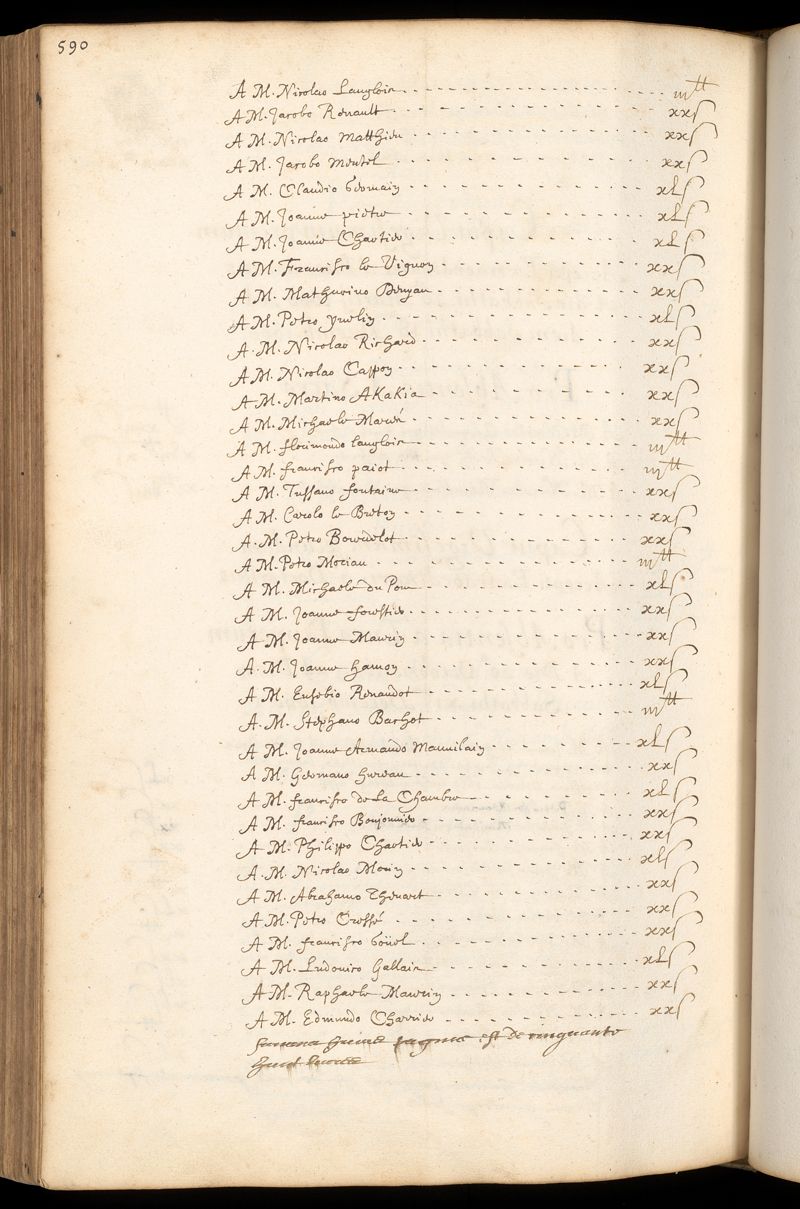 590
A M. Nicolao Langlois - - - - - - iij tt
A M. Jacobo Renault - - - - - - xx s
A M. Nicolao Matthieu - - - - - - xx s
A M. Jacobo Mentel - - - - - - xx s
A M. Claudio Germain - - - - - - xl s
A M. Joanne pietre - - - - - - xl s
A M. Joanne Chartier - - - - - - xl s
A M. Francisco le Vignon - - - - - - xx s
A M. Mathurino Denyau - - - - - - xx s
A M. Petro yvelin - - - - - - xl s
A M. Nicolao Richard - - - - - - xx s
A M. Nicolao Cappon - - - - - - xx s
A M. Martino AKaKia - - - - - - xx s
A M. Michaele Marcés - - - - - - xx s
A M. florimondo Langlois - - - - - - iij tt
A M. francisco paiot - - - - - - iij tt
A M. Tussano fontaine - - - - - - xx s
A M. Carolo le Breton - - - - - - xx s
A M. Petro Bourdelot - - - - - - xx s
A M. Petro Morian - - - - - - iij tt
A M. Michaele du Pont - - - - - - xl s
A M. Joanne forestier - - - - - - xx s
A M. Joanne Maurin - - - - - - xx s
A M. Joanne hamon - - - - - - xx s
A M. Eusebio Renaudot - - - - - - xl s
A M. Stephano Bachot - - - - - - iij tt
A M. Joanne Armando Mauvilain - - - - - - xl s
A M. Germano hureau - - - - - - xx s
A M. francisco de La Chambre - - - - - - xl s
A M. francisco Boujonnier - - - - - - xx s
A M. Philippo Chartier - - - - - - xx s
A M. Nicolao Morin - - - - - - xl s
A M. Abrahamo Thevart - - - - - - xx s
A M. Petro Cressé - - - - - - xx s
A M. francisco Goüel - - - - - - xx s
A M. Ludovico Gallais - - - - - - xl s
A M. Raphaele Maurin - - - - - - xx s
A M. Edmundo Charrier - - - - - - xx s
summa huius paginae est de cinquante
huict livres